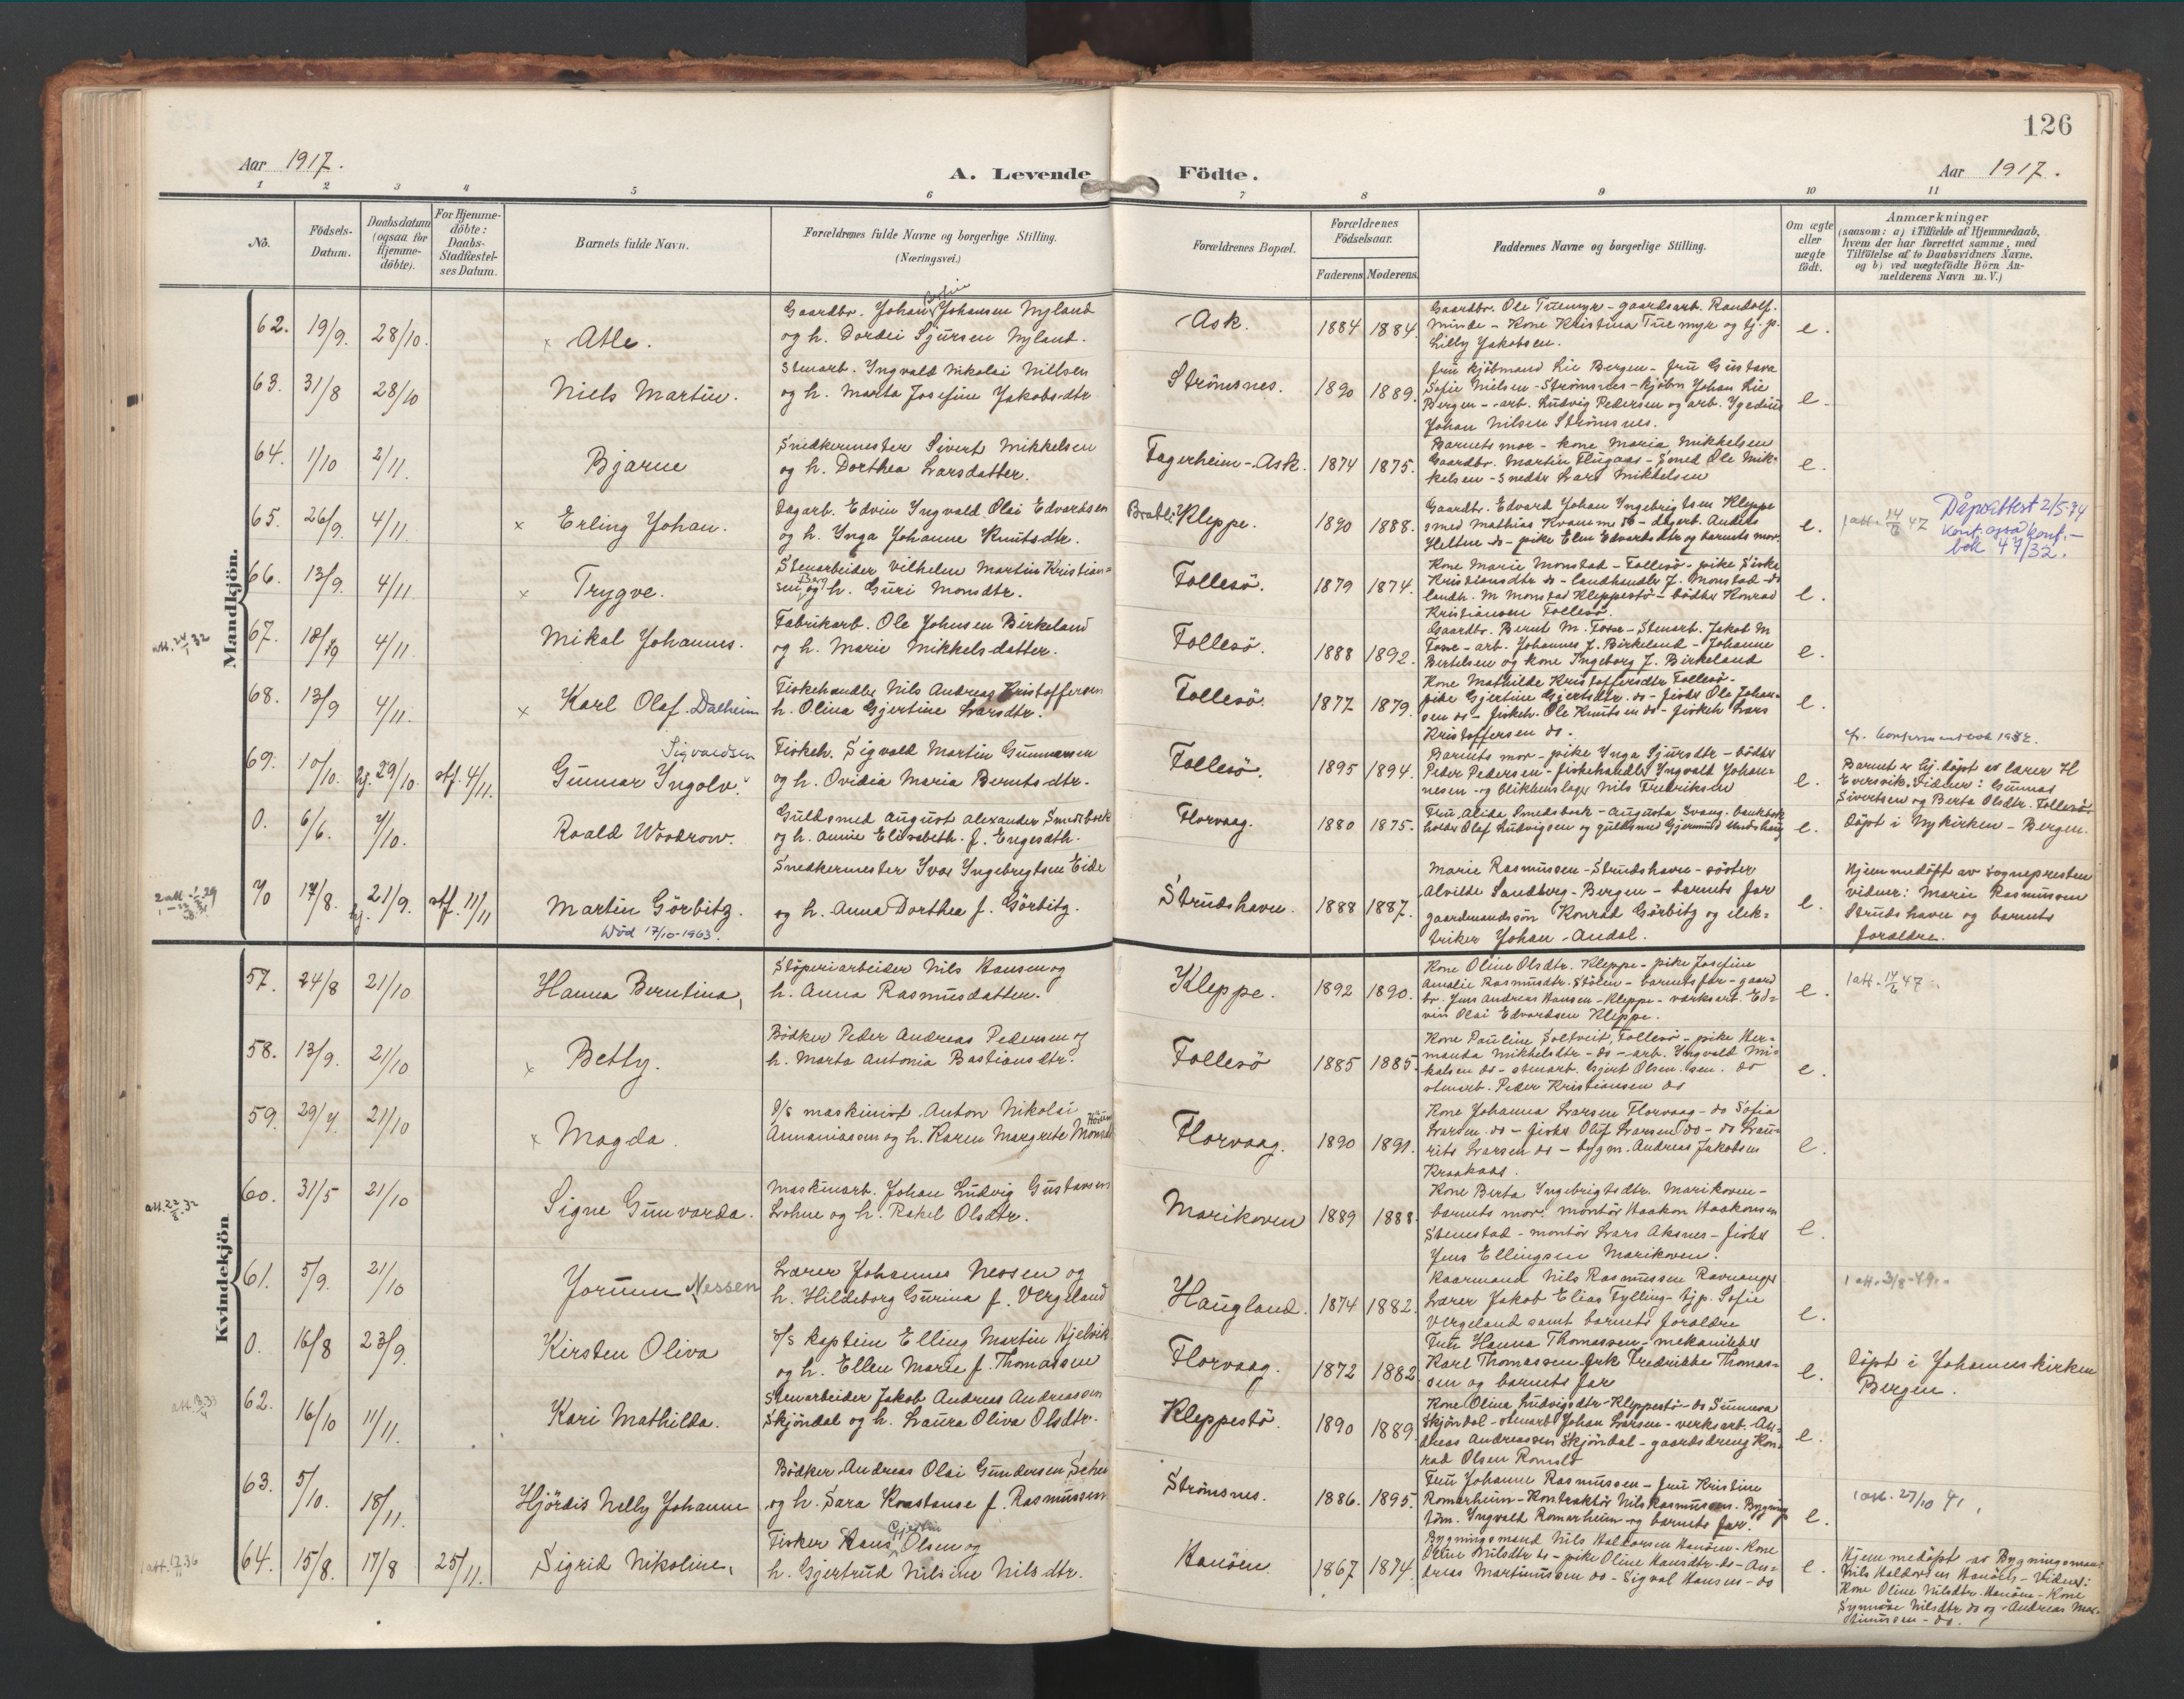 126
Aar 1917.
A. Levende Födte.
Aar 1917.
1 2 3 4 5 6 7 8 9 10 11
No.
Födsels-Datum.
Daabsdatum (ogsaa for Hjemme-döbte).
For Hjemme-döbte: Daabs-Stadfæstel-ses Datum.
Barnets fulde Navn.
Forældrenes fulde Navne og borgerlige Stilling.
(Næringsvei.)
Forældrenes Bopæl.
Forældrenes Födselsaar.
Faderens. Moderens.
Faddernes Navne og borgerlige Stilling.
Om ægte eller uægte födt.
Anmærkninger
(saasom: a) i Tilfælde af Hjemmedaab, hvem der har forrettet samme, med Tilföielse af to Daabsvidners Navne, og b) ved uægtefödte Börn An-melderens Navn m.V.)
Mandkjön.
62. 19/9. 28/10. × Atle.
Gaardbr. Johan Johansen Nyland
og h. Dordei Sjursen Nyland.
Ask. 1884 1884.
Gaardbr. Ole Tuemyr - gaardsarb. Randolf.
Minde - Kone Kristina Tuemyr og tj. p.
Lilly Jakobsen.
e.
63. 31/8 28/10 Niels Martin.
Stenarb. Ingvald Nikolai Nillsen
og h. Marta Josefine Jakobsdtr
Strömsnes. 1890 1889.
fru kjöbmand Lie Bergen - fru Gustava
Sofie Nielsen - Strömsnes - kjöbm Johan Lie
Bergen - arb. Ludvig Pedersen og arb.
Johan Nilsen Strömsnes.
e.
64. 1/10 2/11. Bjarne
Snedkermester Sivert Mikkelsen
og h. Dorthea Larsdatter.
Fagerheim - Ask. 1874 1875.
Barnets mor - kone Maria Mikkelsen
Gaardbr. Martin Flugaas - Smed Ole Mik-
kelsen - snedker Lars Mikkelsen
e.
65. 26/9. 4/11. × Erling Johan.
Dagarb. Edvin Ingvald Olai Edvardsen
og h. Inga Johanne Knutsdtr.
Kleppe. 1890 1888.
Gaardbr. Edvard Johan Ingebrigtsen Kleppe
smed Mathias Kvamme do - dagarb. Anders
Heltne do - pike Elen Edvardsdtr og barnets mor.
e.
1 att. 14/6 47
Dåpsattest 2/5-34
konf. også konf.-
bok 47/32.
66. 13/9. 4/11. × Trygve.
Stenarbeider Vilhelm Martin Kristian-
sen Berg og h. Guri Monsdtr.
Follesö. 1879 1874.
Kone Marie Monstad - Follesö - pike Siske
Kristiansdtr do - landhandler J. Monstad - do
landh. M Monstad Kleppestö - bödker Konrad
Kristiansen Follesö.
e.
att. 24/1 32
67. 18/9 4/11. Mikal Johannes.
Fabrikarb. Ole Johnsen Birkeland
og h. Marie Mikkelsdatter.
Follesö. 1888 1892.
Gaardbr. Bernt M. Fosse - Stenarb. Jakob M
Fosse - arb. Johannes J. Birkeland - Johanne
Bertelsen og kone Ingeborg J. Birkeland
e.
68. 13/9 4/11. × Karl Olaf. Dalheim
Fiskehandler Nils Andreas Kristoffersen
h. Olina Gjertine Larsdtr.
Follesö. 1877 1879.
Kone Mathilde Kristoffersdtr Follesö.
pike Gjertine Gjertsdtr. do - fisker Ole Johan-
sen do - fiskeh. Ole Knutsen do - fiskeh Lars
Kristoffersen do.
e.
69. 10/10. hj. 29/10 stf. 4/11. Gunnar Ingolv. Sigvaldsen
Fiskeh. Sigvald Martin Gunnarsen
og h. Ovidia Maria Berntsdtr.
Follesö. 1895 1894.
Barnets mor - pike Inga Sjursdtr - bödker
Peder Pedersen - fiskehandler Ingvald Johan-
nesen - og blikkenslager Nils Fredriksen
e.
Barnet er hj. döpt av lærer H
Eversvik. Vidner: Gunnar
Sivertsen og Berta Olsdtr. Follesö.
0. 6/6. 7/10. Roald Woodrow.
Guldsmed August Alexander Smedsbock
og h. Annie Elisabeth f. Engesæth.
Florvaag. 1880 1875.
Fru Alida Smedsbock - Augusta Svang. bankbok-
holder Olaf Ludvigsen og guldsmed Gjermund
e.
Döpt i Nykirken - Bergen.
70 17/8. hj. 21/9. stf. 11/11 Martin Görbitz.
Död 17/10-1963.
Snedkermester Ivar Ingebrigtsen Eide
og h. Anna Dorthea f. Görbitz.
Strudshavn. 1888 1887.
Marie Rasmussen - Strudshavn - söster
Alvilde Sandberg - Bergen - barnets far
gaardmandssön Konrad Görbitz og elek-
triker Johan Andal.
e.
Hjemmedöpt av sognepresten
vidner: Marie Rasmussen
Strudshavn og barnets
foraldre.
Kvindekjön
57. 24/8 21/10 Hanna Berntina,
Stöperiarbeider Nils Hansen og
h. Anna Rasmusdatter.
Kleppe. 1892 1890.
Kone Oline Olsdtr. Kleppe - pike Josefine
Amalie Rasmusdtr. Stölen - barnets far - gaard
br. Jens Andreas Hansen - Kleppe - værksarb. Ed-
vin Olai Edvardsen Kleppe.
e.
1 att. 14/6 47.
58. 13/9. 21/10 × Betty.
Bödker Peder Andreas Pedersen og
h. Marta Antonia Bastiansdtr.
Follesö 1885 1885.
Kone Pauline Soltveit, Follesö - pike Her-
manda Mikkelsdtr - do - arb. Ingvald Mi-
kalsen do - stenarb. Gjert Olsen. do
stenarb. Peder Kristiansen do
e.
59. 29/7. 21/10 × Magda.
D/S maskinist Anton Nikolai
Annaniassen og h. Karen Margrete Monsdtr
Florvaag. 1890 1891.
Kone Johanna Larsen Florvaag - do Sofia
Larsen do - fisker Oluf Larsen do - do Lau-
rits Larsen do - bygm. Andreas Jakobsen
Kraakaas.
e.
att. 22/8. 32
60. 31/5 21/10 Signe Gunvarda.
Maskinarb. Johan Ludvig Gustavsen
Lohne og h. Rakel Olsdtr.
Marikoven 1889 1888.
Kone Berta Ingebrigtsdtr. Marikoven -
barnets mor. montör Haakon Haakonsen
Stenestad - montör Lars Aksnes - fisker
Jens Ellingsen Marikoven.
e.
61. 5/9. 21/10 Jorunn Nessen
Lærer Johannes Nessen og
h. Hildeborg Gurina f. Vergeland
Haugland. 1874 1882.
Kaarmand Nils Rasmussen Ravnanger
Lærer Jakob Elias Tylling - tjp. Sofie
Vergeland samt barnets foraldre
e.
1 att. 3/8-49.
0. 16/8 23/9. Kirsten Oliva
D/S kaptein Elling Martin Hjelvik
og h. Ellen Marie f. Thomassen
Florvaag. 1872 1882
Fru Hanna Thomassen - mekaniker
Karl Thomassen frk Fredrikke Thomas-
sen og barnets far
e.
Döpt i Johanneskirken
Bergen.
62. 16/10 11/11. Kari Mathilda.
Stenarbeider Jakob Andreas Andreassen
Skjöndal og h. Laura Oliva Olsdtr.
Kleppestö. 1890 1889.
Kone Olina Ludvigsdtr - Kleppestö - do Sunneva
Skjöndal - stenarb. Johan Larsen - verksarb. An-
dreas Andreassen Skjöndal - gaardsdreng Kon-
rad Olsen Romslo
e.
63. 5/10. 18/11. Hjördis Nelly Johanne
Bödker Andreas Olai Gundersen
og h. Sara Konstanse f. Rasmussen
Strömsnes. 1886. 1895.
Fru Johanne Rasmussen - fru Kristine
Romarheim - Kontraktör Nils Rasmussen. Bygnings
töm. Ingvald Romarheim og barnets far.
e.
1 att. 27/10 41.
1 att. 17/11 36
64. 15/8. 17/8 25/11. Sigrid Nikoline,
Fisker Hans Gjertin Olsen og
h. Gjertrud Nilsine Nilsdtr.
Hanöen 1867 1874
Bygningsmand Nils Haldorsen Hanöen - Kone
Oline Nilsdtr do - pike Oline Hansdtr - do - An-
dreas Martinussen do - Sigval Hansen - do
e.
Hjemmedöpt av Bygningsman
Nils Haldorsen Hanöen - Vidner:
Kone Oline Nilsdtr. Hanöen - Kone
Synnöve Nilsdtr do og Andreas Mar-
tinussen - do.